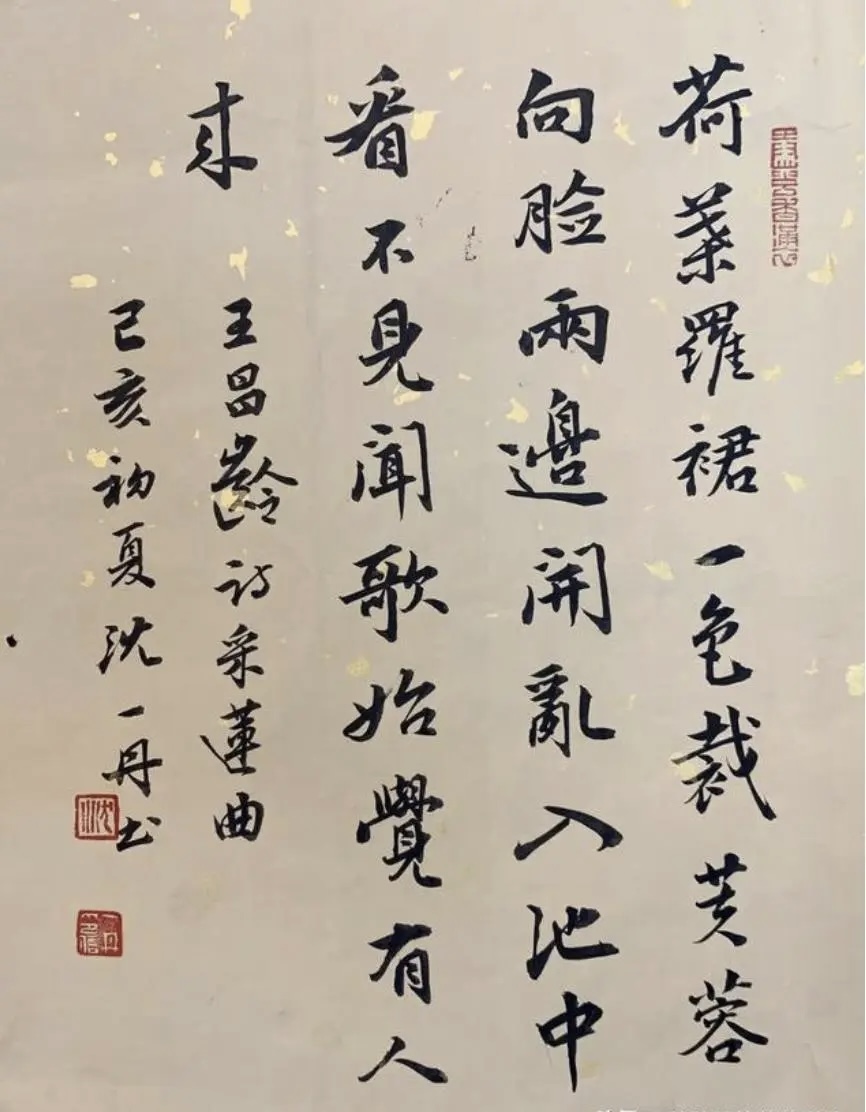 荷葉羅裙一色裁芙蓉
向脸兩邊開亂入池中
看不見聞歌始覺有人
来
王昌齡詩采蓮曲
己亥初夏沈一丹书